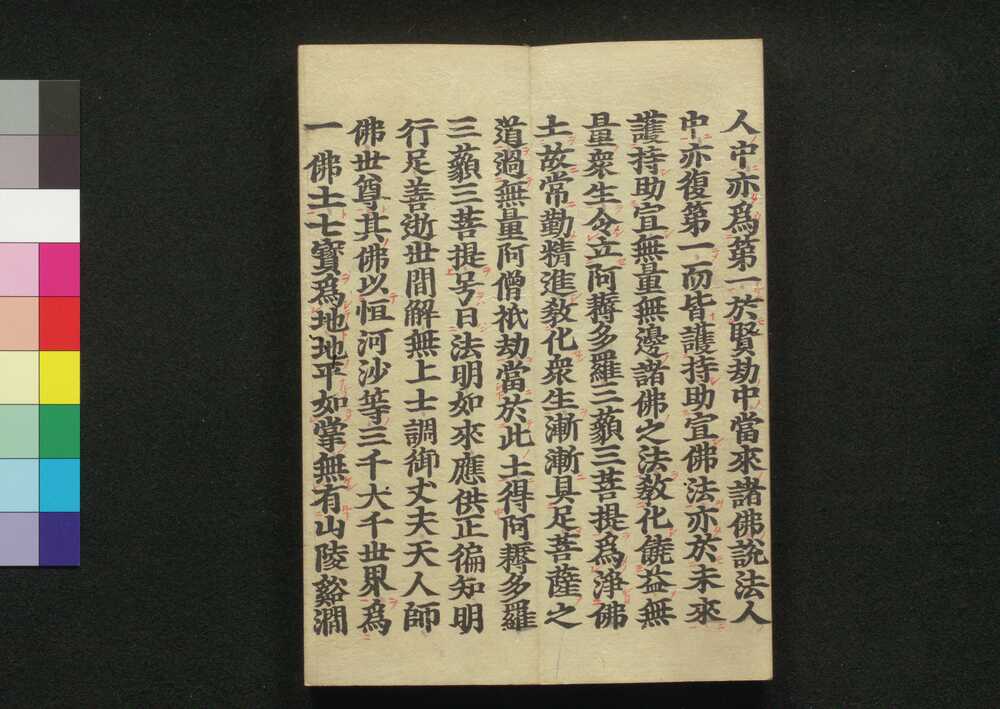 人中亦爲第一於賢劫中當來諸佛說法人
中亦復第一而皆護持助宣佛法亦於未來
護持助宣無量無邊諸佛之法敎化饒益無
量衆生令立阿耨多羅三藐三菩提爲淨佛
土故常勤精進敎化衆生漸漸具足菩薩之
道過無量阿僧祇劫當於此土得阿耨多羅
三藐三菩提号曰法明如來應供正徧知明
行足善逝世間解無上士調御丈夫天人師
佛世尊其佛以恒河沙等三千大千世界爲
一佛土七寶爲地地平如掌無有山陵谿澗